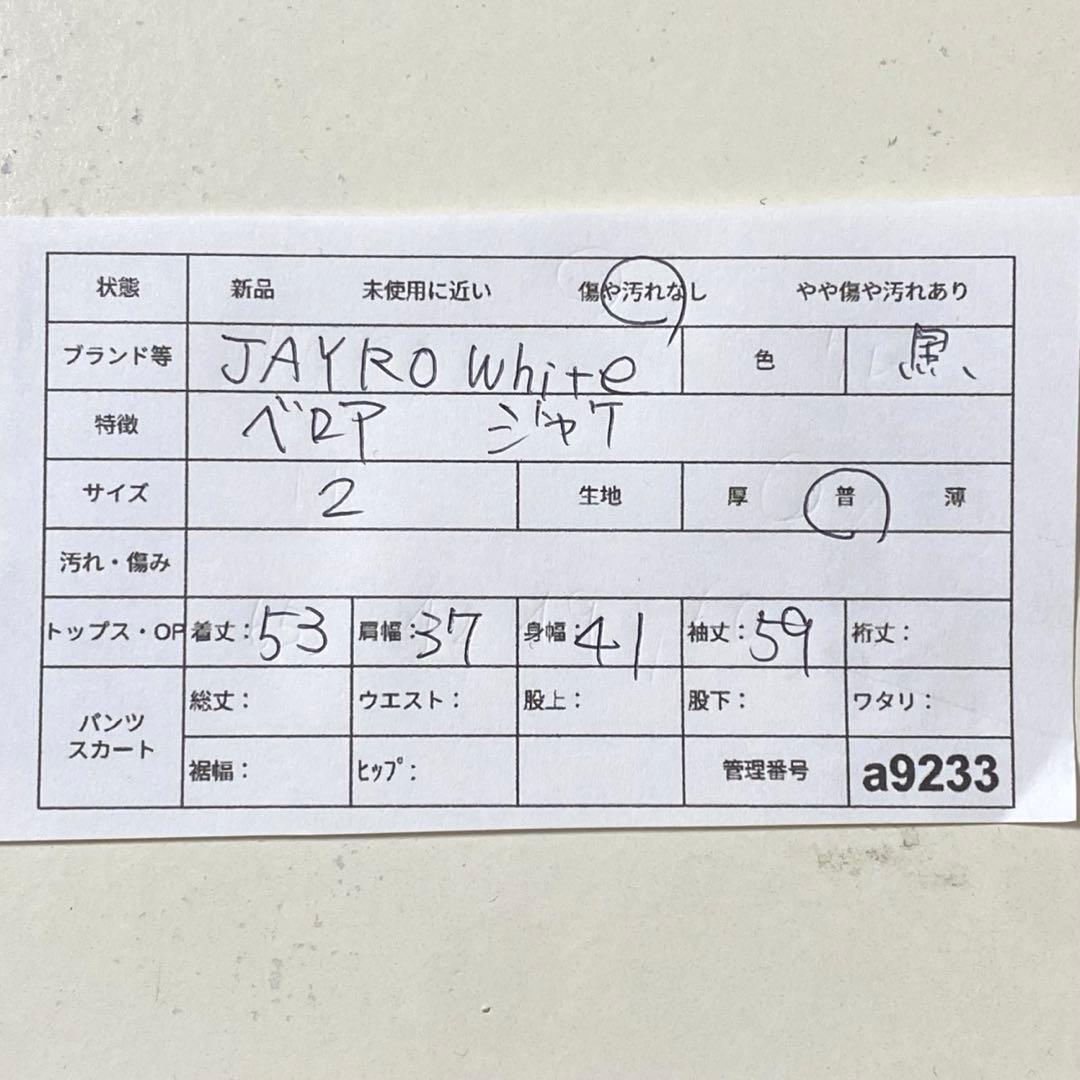 状態 新品 未使用に近い 傷や汚れなし やや傷や汚れあり
ブランド等 JAYRO White 色 黒、
特徴 ベロア ジャケ
サイズ 2 生地 厚 普 薄
汚れ・傷み
トップス・OP 着丈：53 肩幅：37 身幅：41 袖丈：59 裄丈：
パンツ スカート 総丈： ウエスト： 股上： 股下： ワタリ：
裾幅： ﾋｯﾌﾟ： 管理番号 a9233